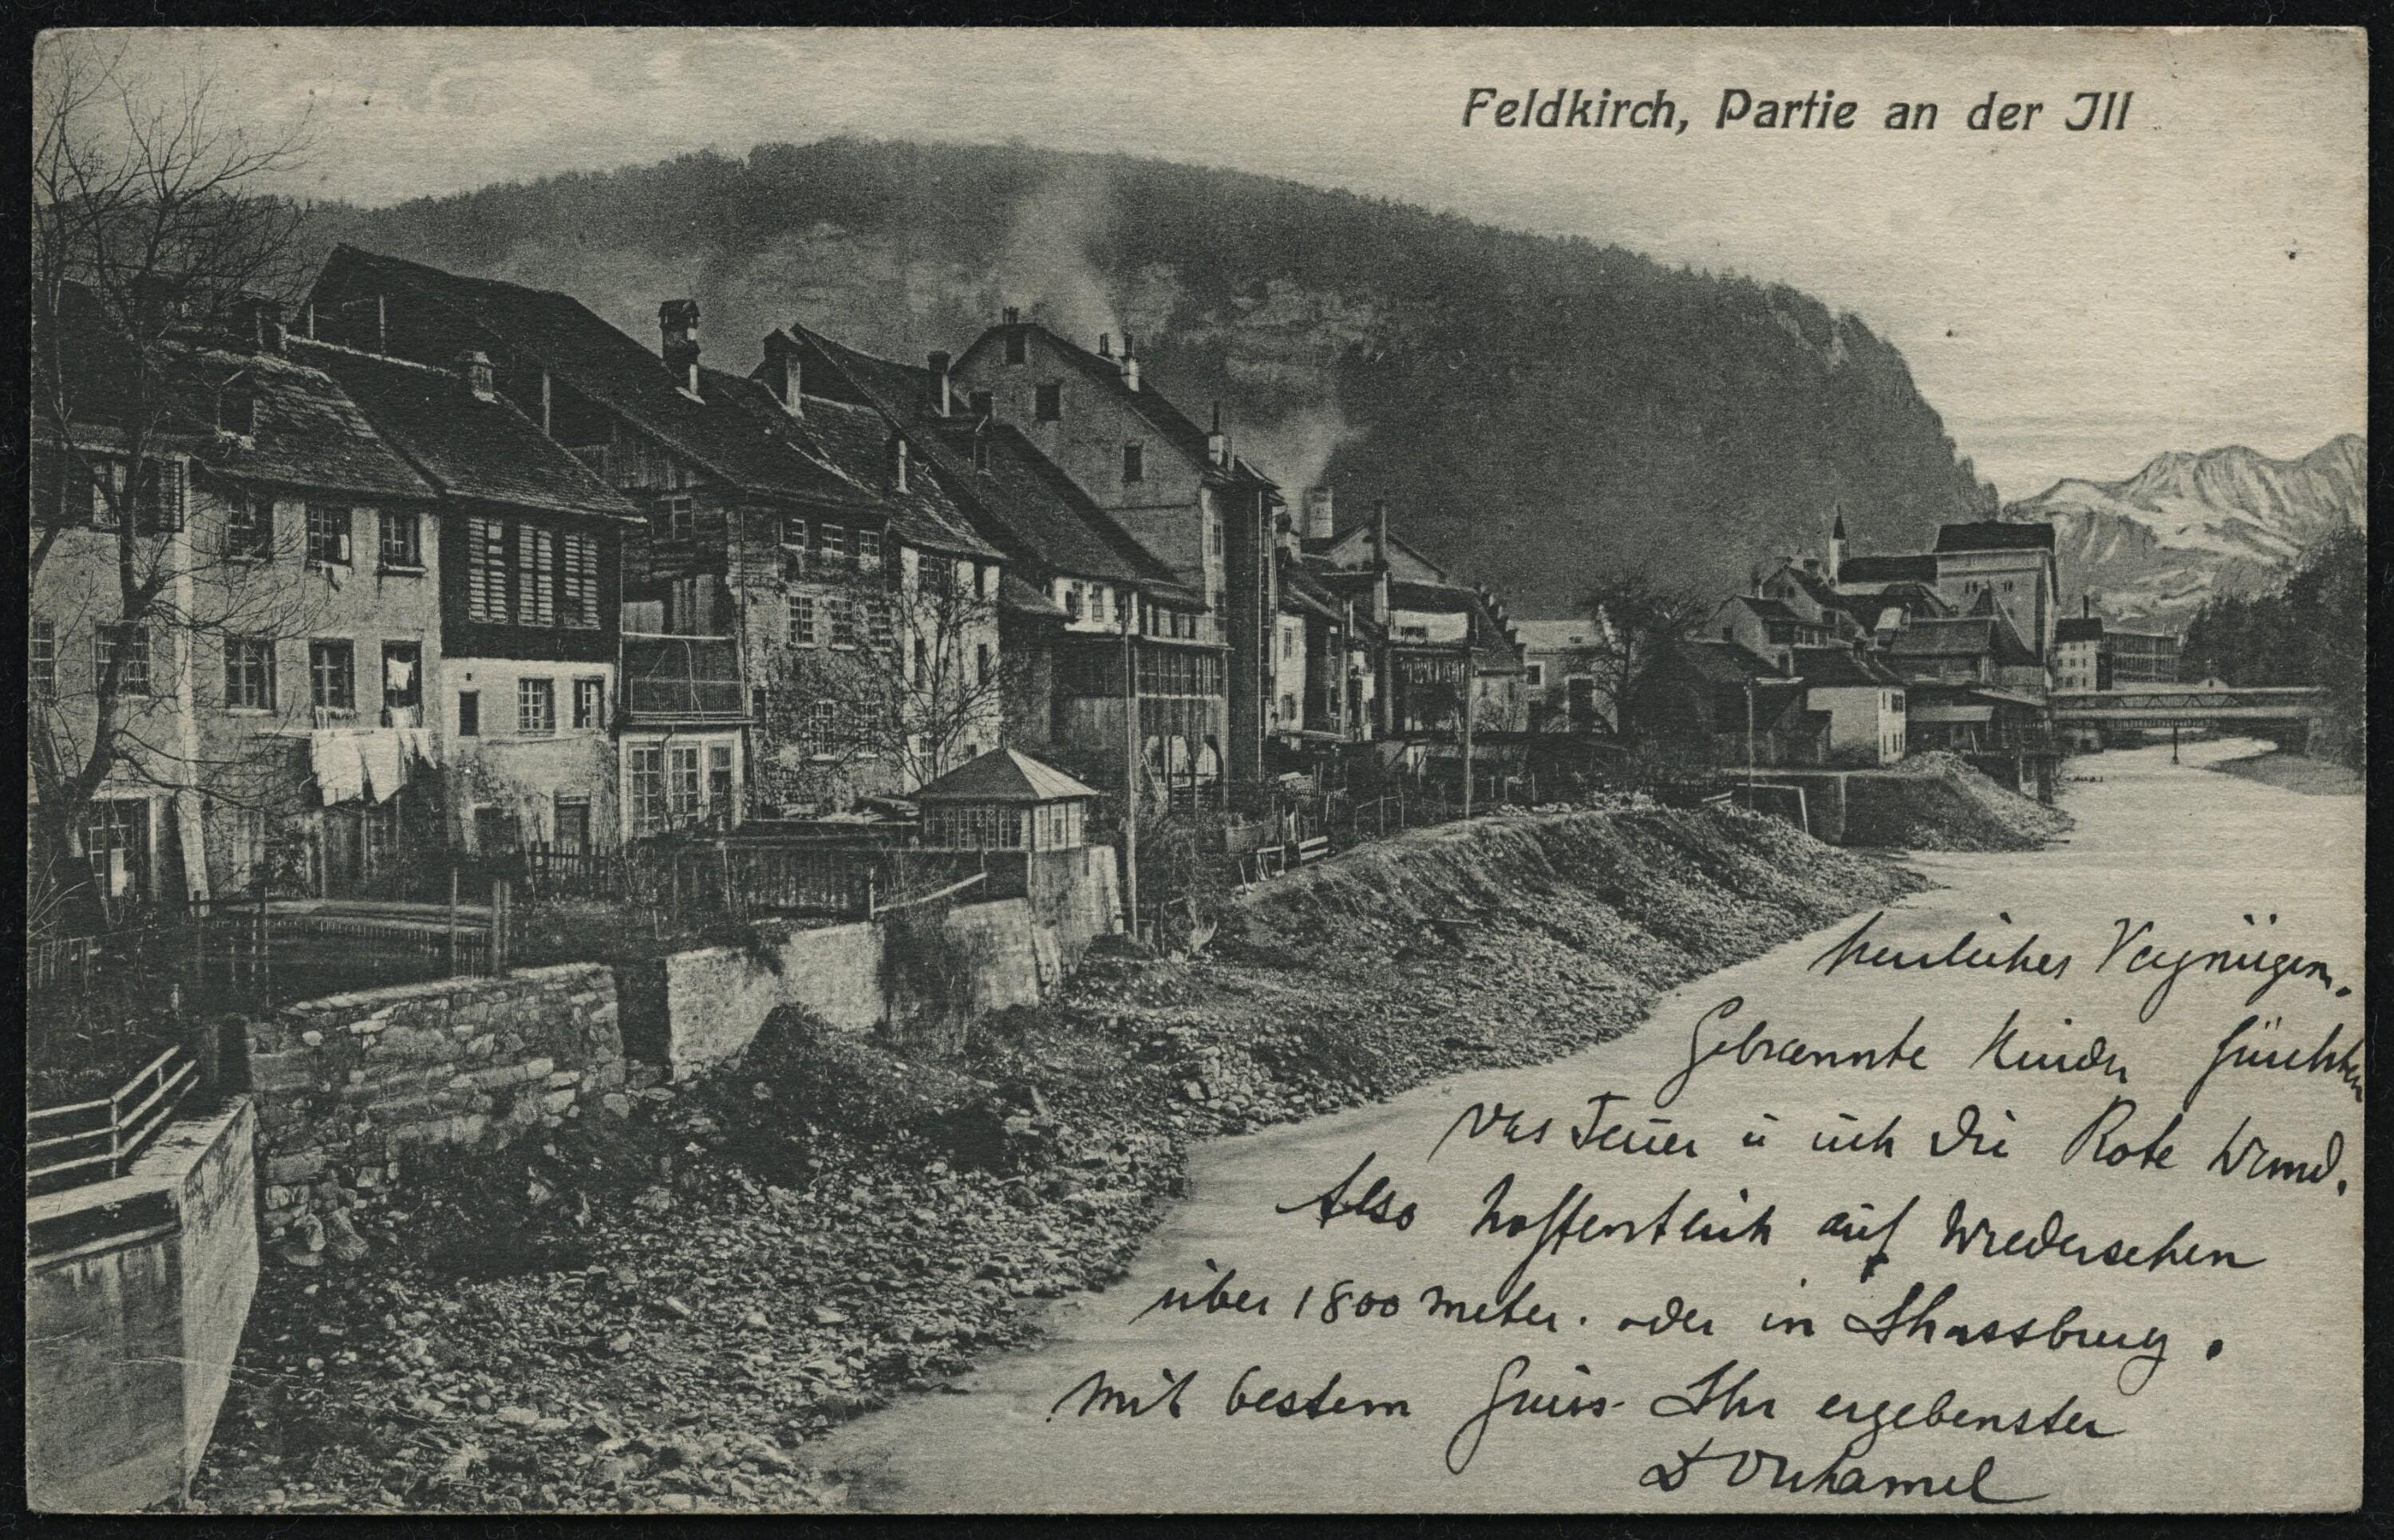 Feldkirch, Partie an der Ill
herrliches Vergnügen.
Gebrannte Kinder fürchten
das Feuer u ich die Rote Wand.
Also hoffentlich auf Wiedersehen
über 1800 meter. oder in Strassburg.
mit bestem Gruss. Ihr ergebenster
Duhamel